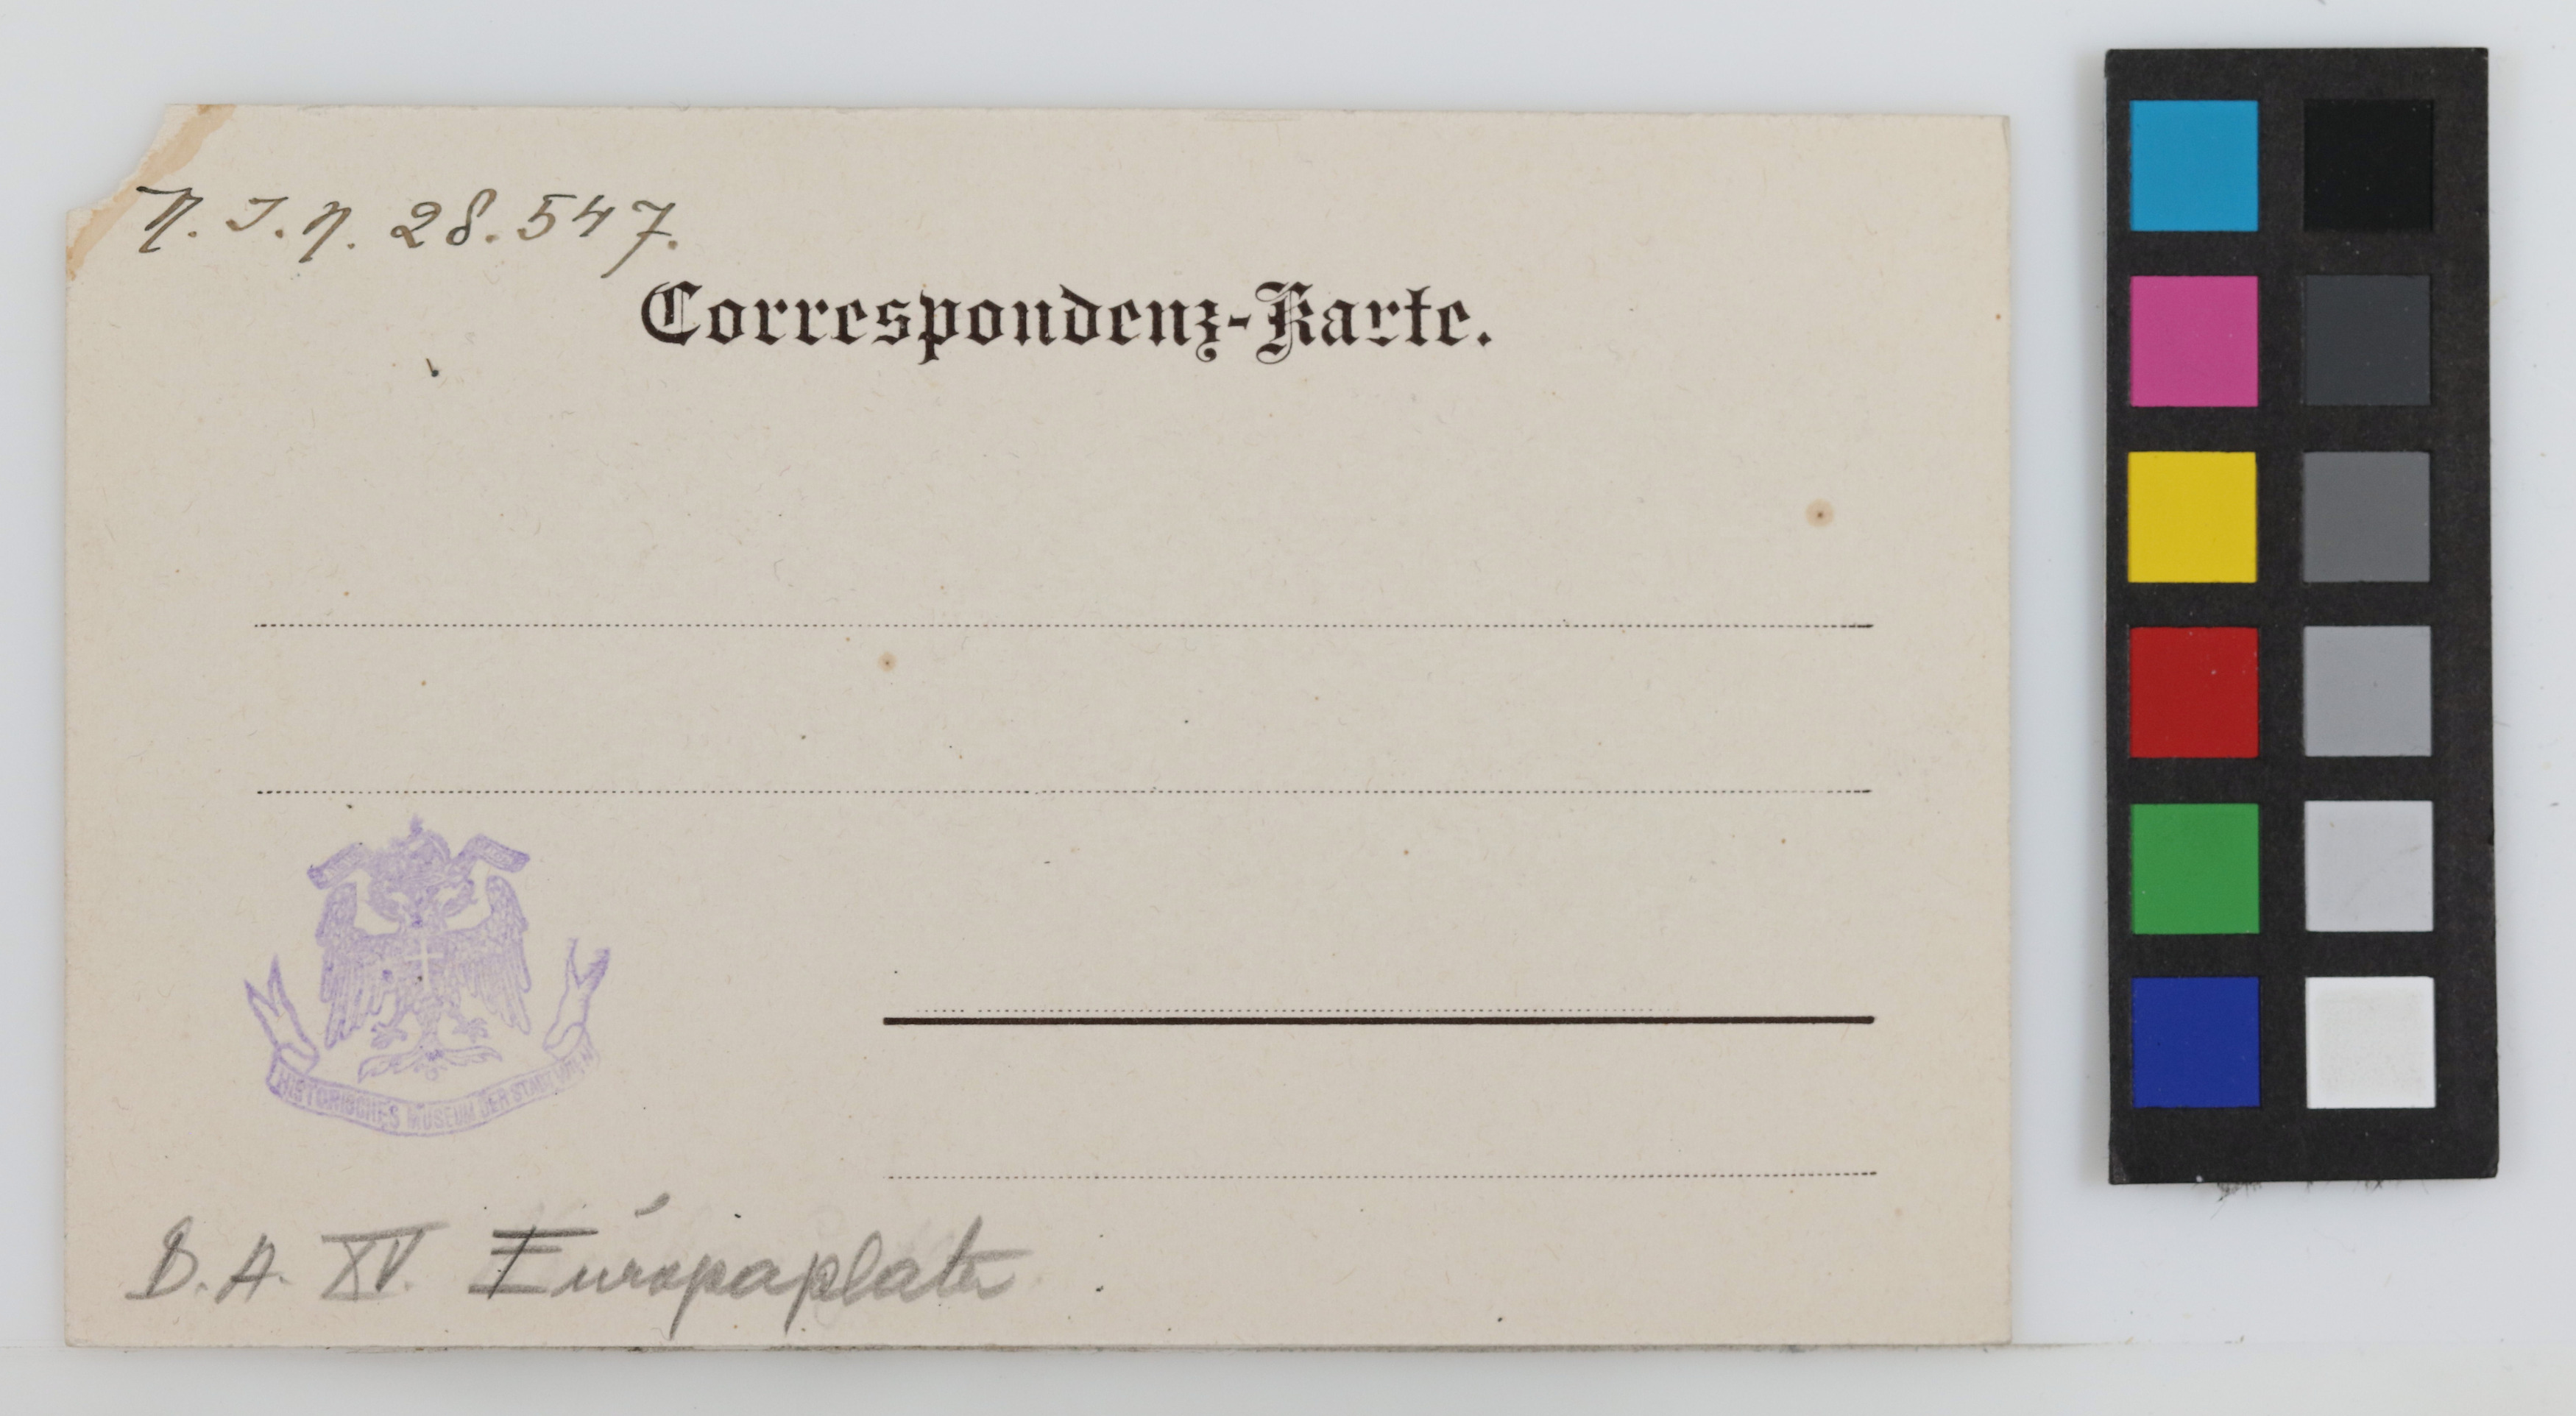 N. I. N. 28.547.
Correspondenz-Karte.
HISTORISCHES MUSEUM DER STADT WIEN
B. A. XV. Europaplatz